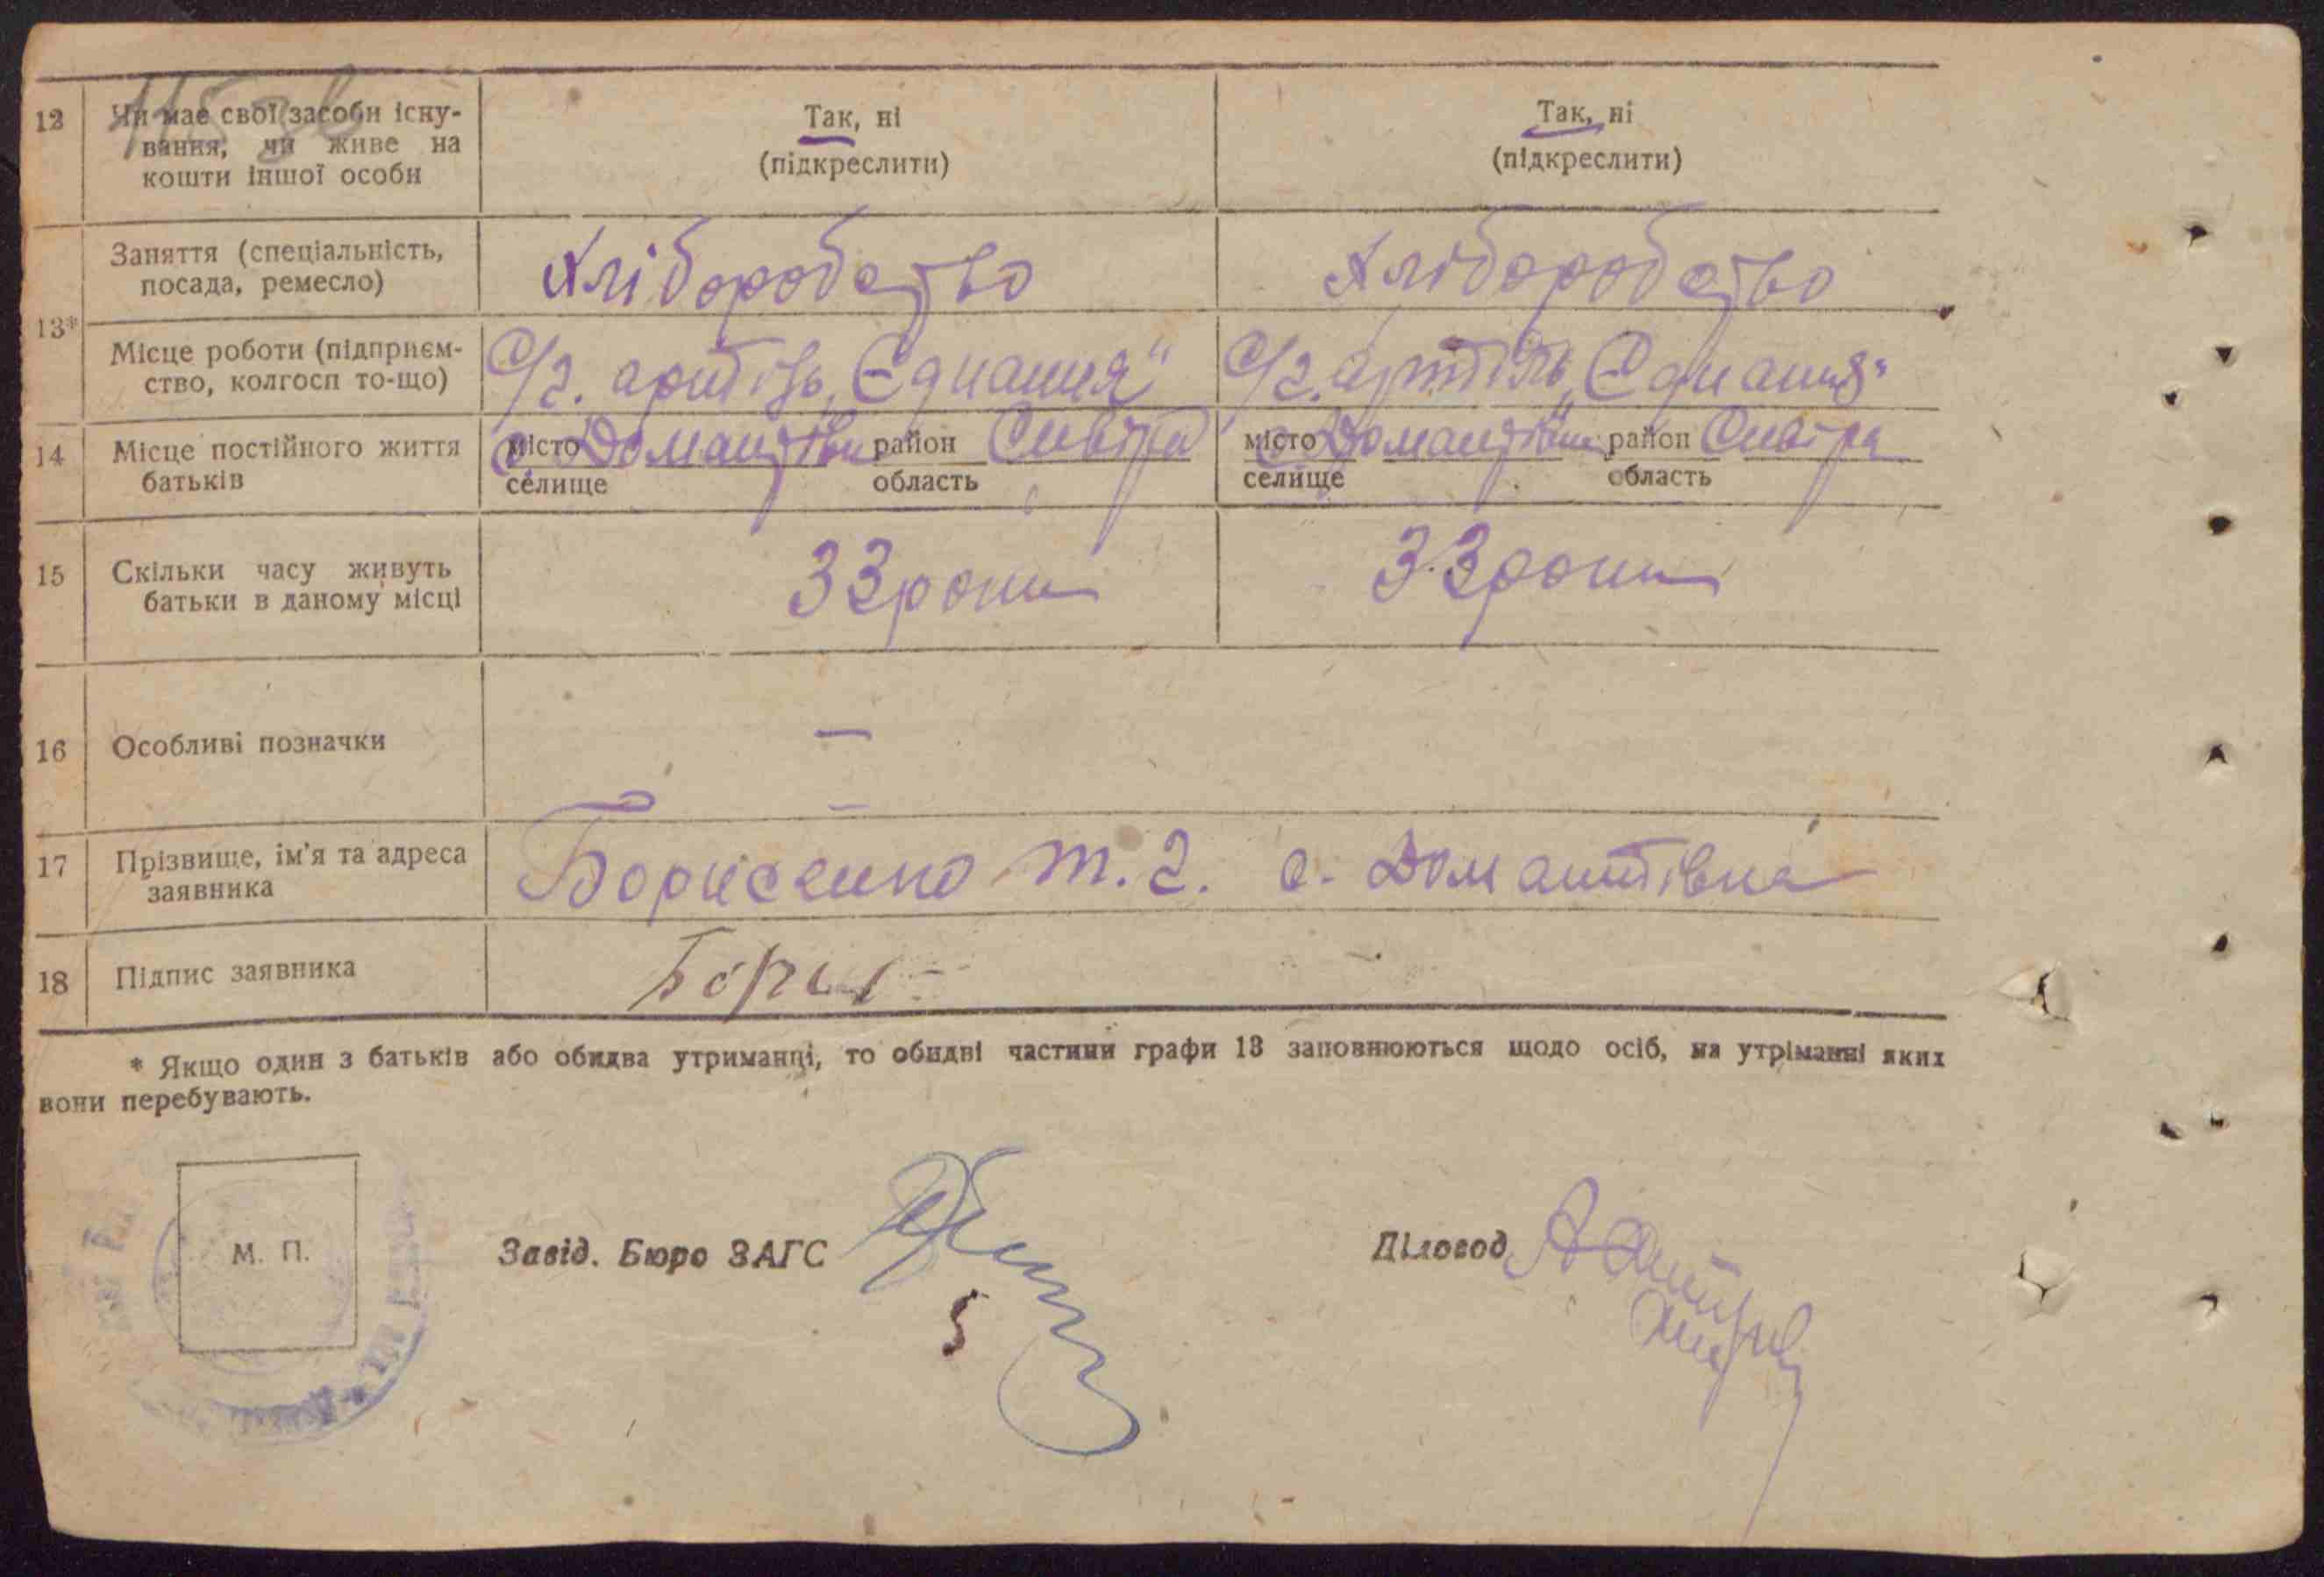 115 зв
12 Чи має свої засоби існу-
вання, чи живе на
кошти іншої особи
Так, ні
(підкреслити)
Так, ні
(підкреслити)
13*
Заняття (спеціальність,
посада, ремесло)
Хліборобство
Хліборобство
Місце роботи (підприєм-
ство, колгосп то-що)
С/г. артіль „Єднання"
С/г. артіль „Єднання"
14 Місце постійного життя
батьків
місто с. Домантівка район Сквіра
селище область
місто с. Домантівка район Сквіра
селище область
15 Скільки часу живуть
батьки в даному місці
33 роки
33 роки
16 Особливі позначки
—
17 Прізвище, ім'я та адреса
заявника
Борисенко т. г. с. Домантівка
18 Підпис заявника
* Якщо один з батьків або обидва утриманці, то обидві частини графи 13 заповнюються щодо осіб, на утріманні яких
вони перебувають.
М. П.
Завід. Бюро ЗАГС
Діловод
5